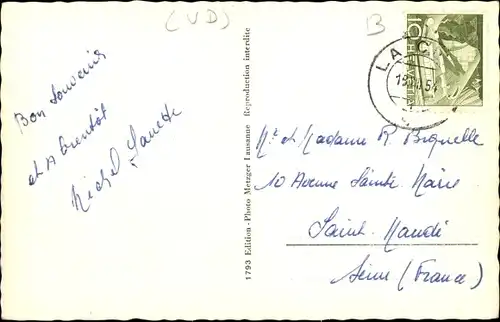 (VD)
B
Bon souvenir
et A bientôt
Michel
1793 Edition-Photo Metzger Lausanne Reproduction interdite
HELVETIA
10
LA
54
Mr et Madame R. Briquelle
10 Avenue Sainte Marie
Saint-Mandé
Seine (France)